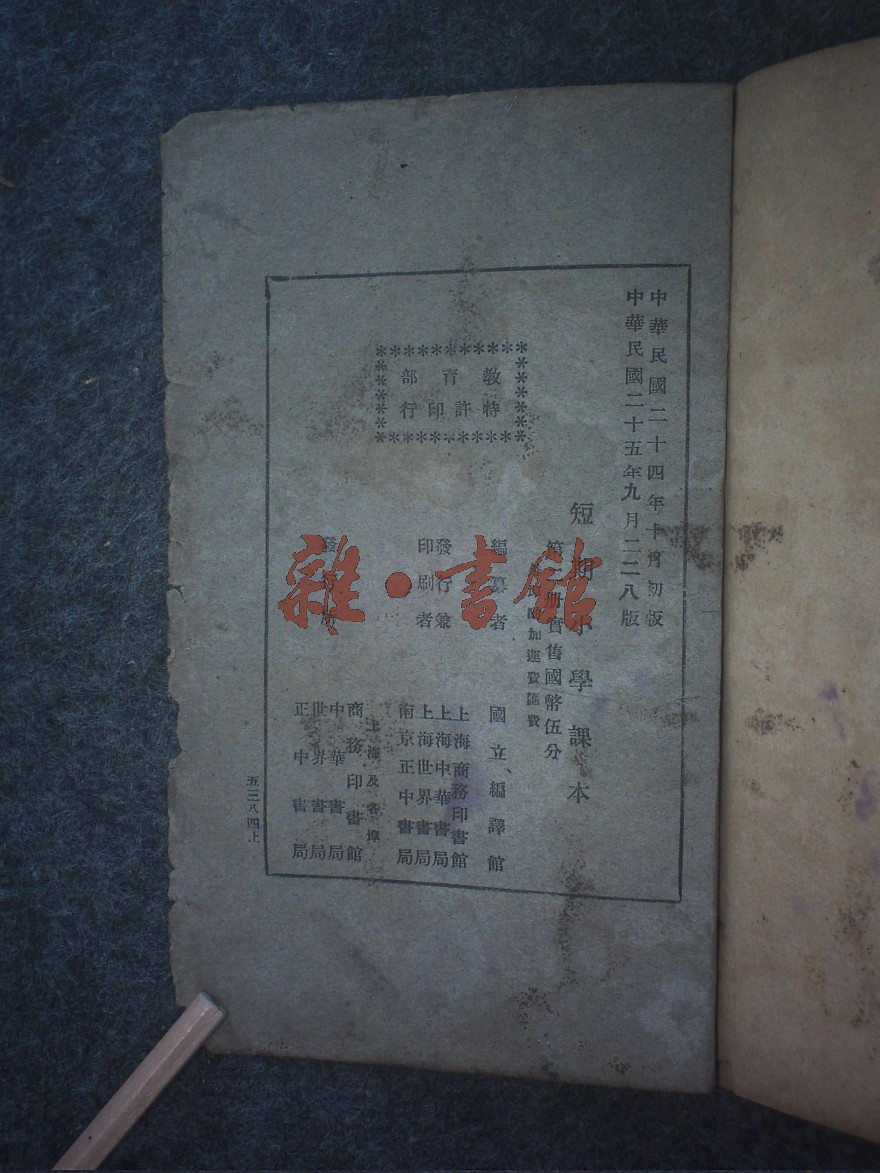 中華民國二十四年十月初版
中華民國二十五年九月二二八版
短期小學課本
第 冊實售國幣伍分
加運費匯費
教育部
特許印行
編纂者 國立編譯館
發行兼
印刷者
上海商務印書館
上海中華書局
上海世界書局
南京正中書局
發行所
上海及各埠
商務印書館
中華書局
世界書局
正中書局
五二八四上
雜·書館